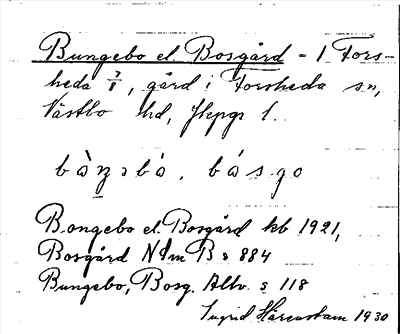 Bungebo el. Bosgård - 1 Fors-
heda 7/8, gård i Forsheda sn,
Västbo hd, Jkpgs l.
bàŋəbò, bósgo
Bongebo el. Bosgård kb 1921,
Bosgård NIm B s 884
Bungebo, Bosg. Allv. s 118
Ingrid Härenstam 1930